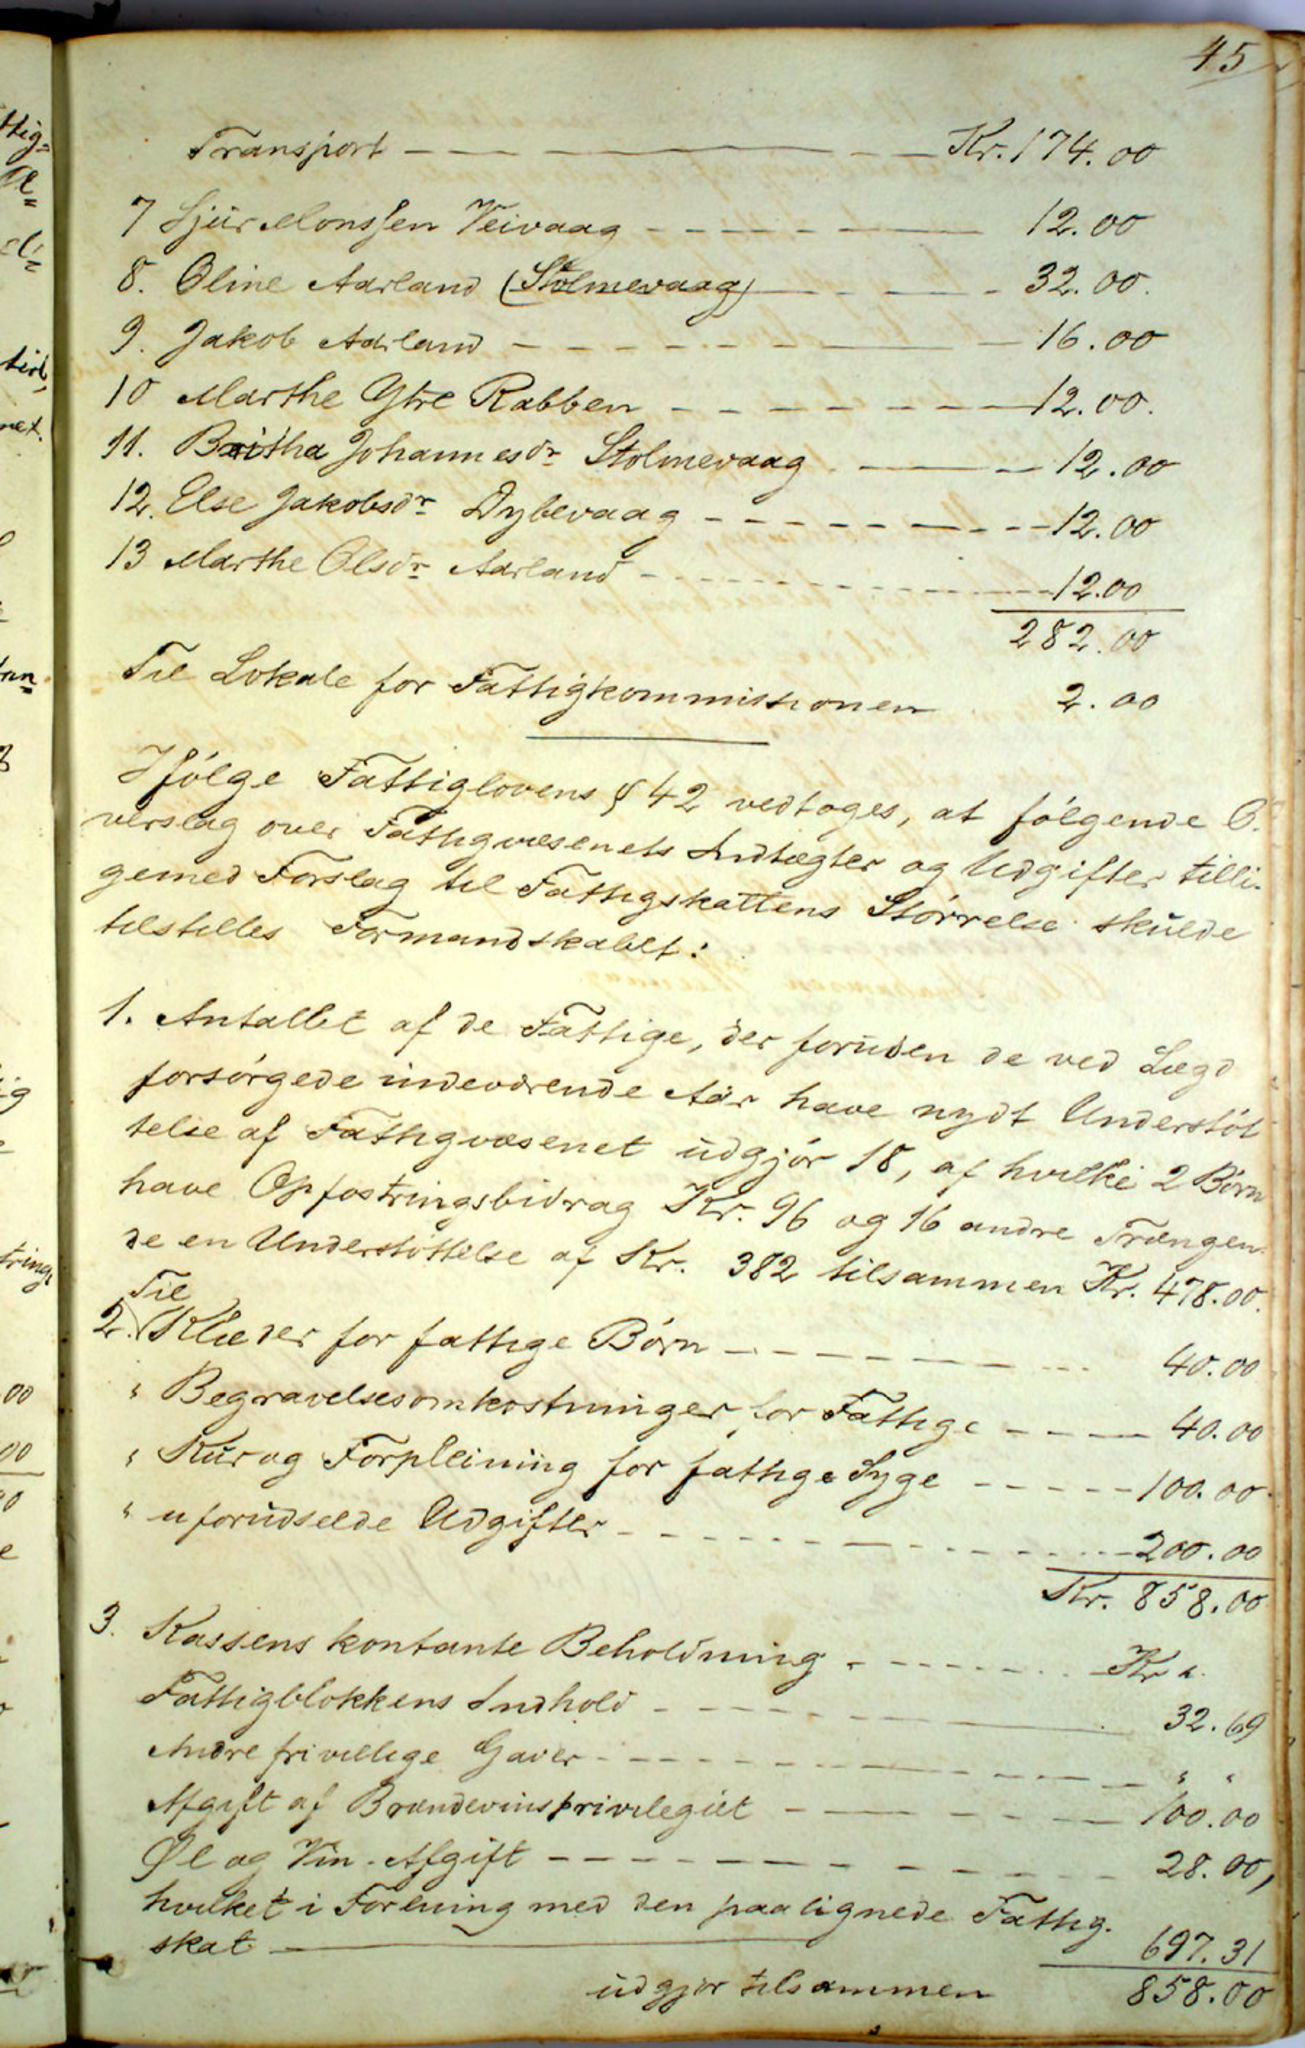 45
Transport Kr. 174.00
7 Sjur Monssen Veivaag 12.00
8. Oline Aarland (Stolmevaag) 32.00.
9. Jakob Aarland 16.00
10 Marthe Ytre Rabben 12.00.
11. Britha Johannesdr Stolmevaag 12.00
12. Else Jakobsdr Dybevaag 12.00
13 Marthe Olsdr Aarland 12.00
282.00
Til Lokale for Fattigkommissionen 2.00
Ifølge Fattiglovens § 42 vedtoges, at følgende O-
verslag over Fattigvæsenets Indtægter og Udgifter tilli-
gemed Forslag til Fattigskattens Størrelse skulde
tilstilles Formandskabet:
1. Antallet af de Fattige, der foruden de ved Lægd
forsørgede indeværende Aar have nydt Understøt
telse af Fattigvæsenet udgjør 18, af hvilke 2 Børn
have Opfostringsbidrag Kr. 96 og 16 andre Trængen-
de en Understøttelse af Kr. 382 tilsammen Kr. 478.00.
Til
2. Klæder for fattige Børn 40.00
" Begravelsesomkostninger for Fattige 40.00
" Kur og Forpleining for fattige Syge 100.00
" uforudseede Udgifter 200.00
Kr. 858.00
3. Kassens kontante Beholdning Kr
Fattigblokkens Indhold 32.69
Andre frivillige Gaver " "
Afgift af Brændevinsprivilegiet 100.00
Øl og Vin-Afgift 28.00,
hvilket i Forening med den paalignede Fattig-
skat 697.31
udgjør tilsammen 858.00